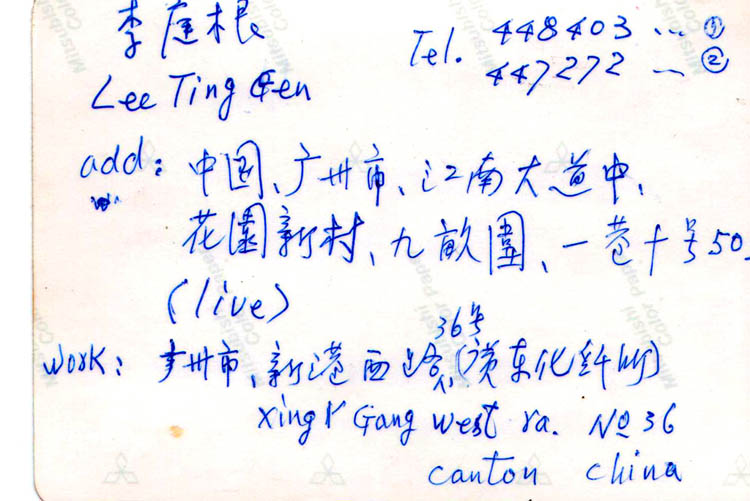 李庭根
Tel. 448403 … ①
447272 … ②
Lee Ting Gen
add: 中国、广州市、江南大道中、
花園新村、九畝圍、一巷十号50.
(live)
36号
Work: 广州市、新港西路、(广东化纤所)
xing Gang West ra. No 36
canton china